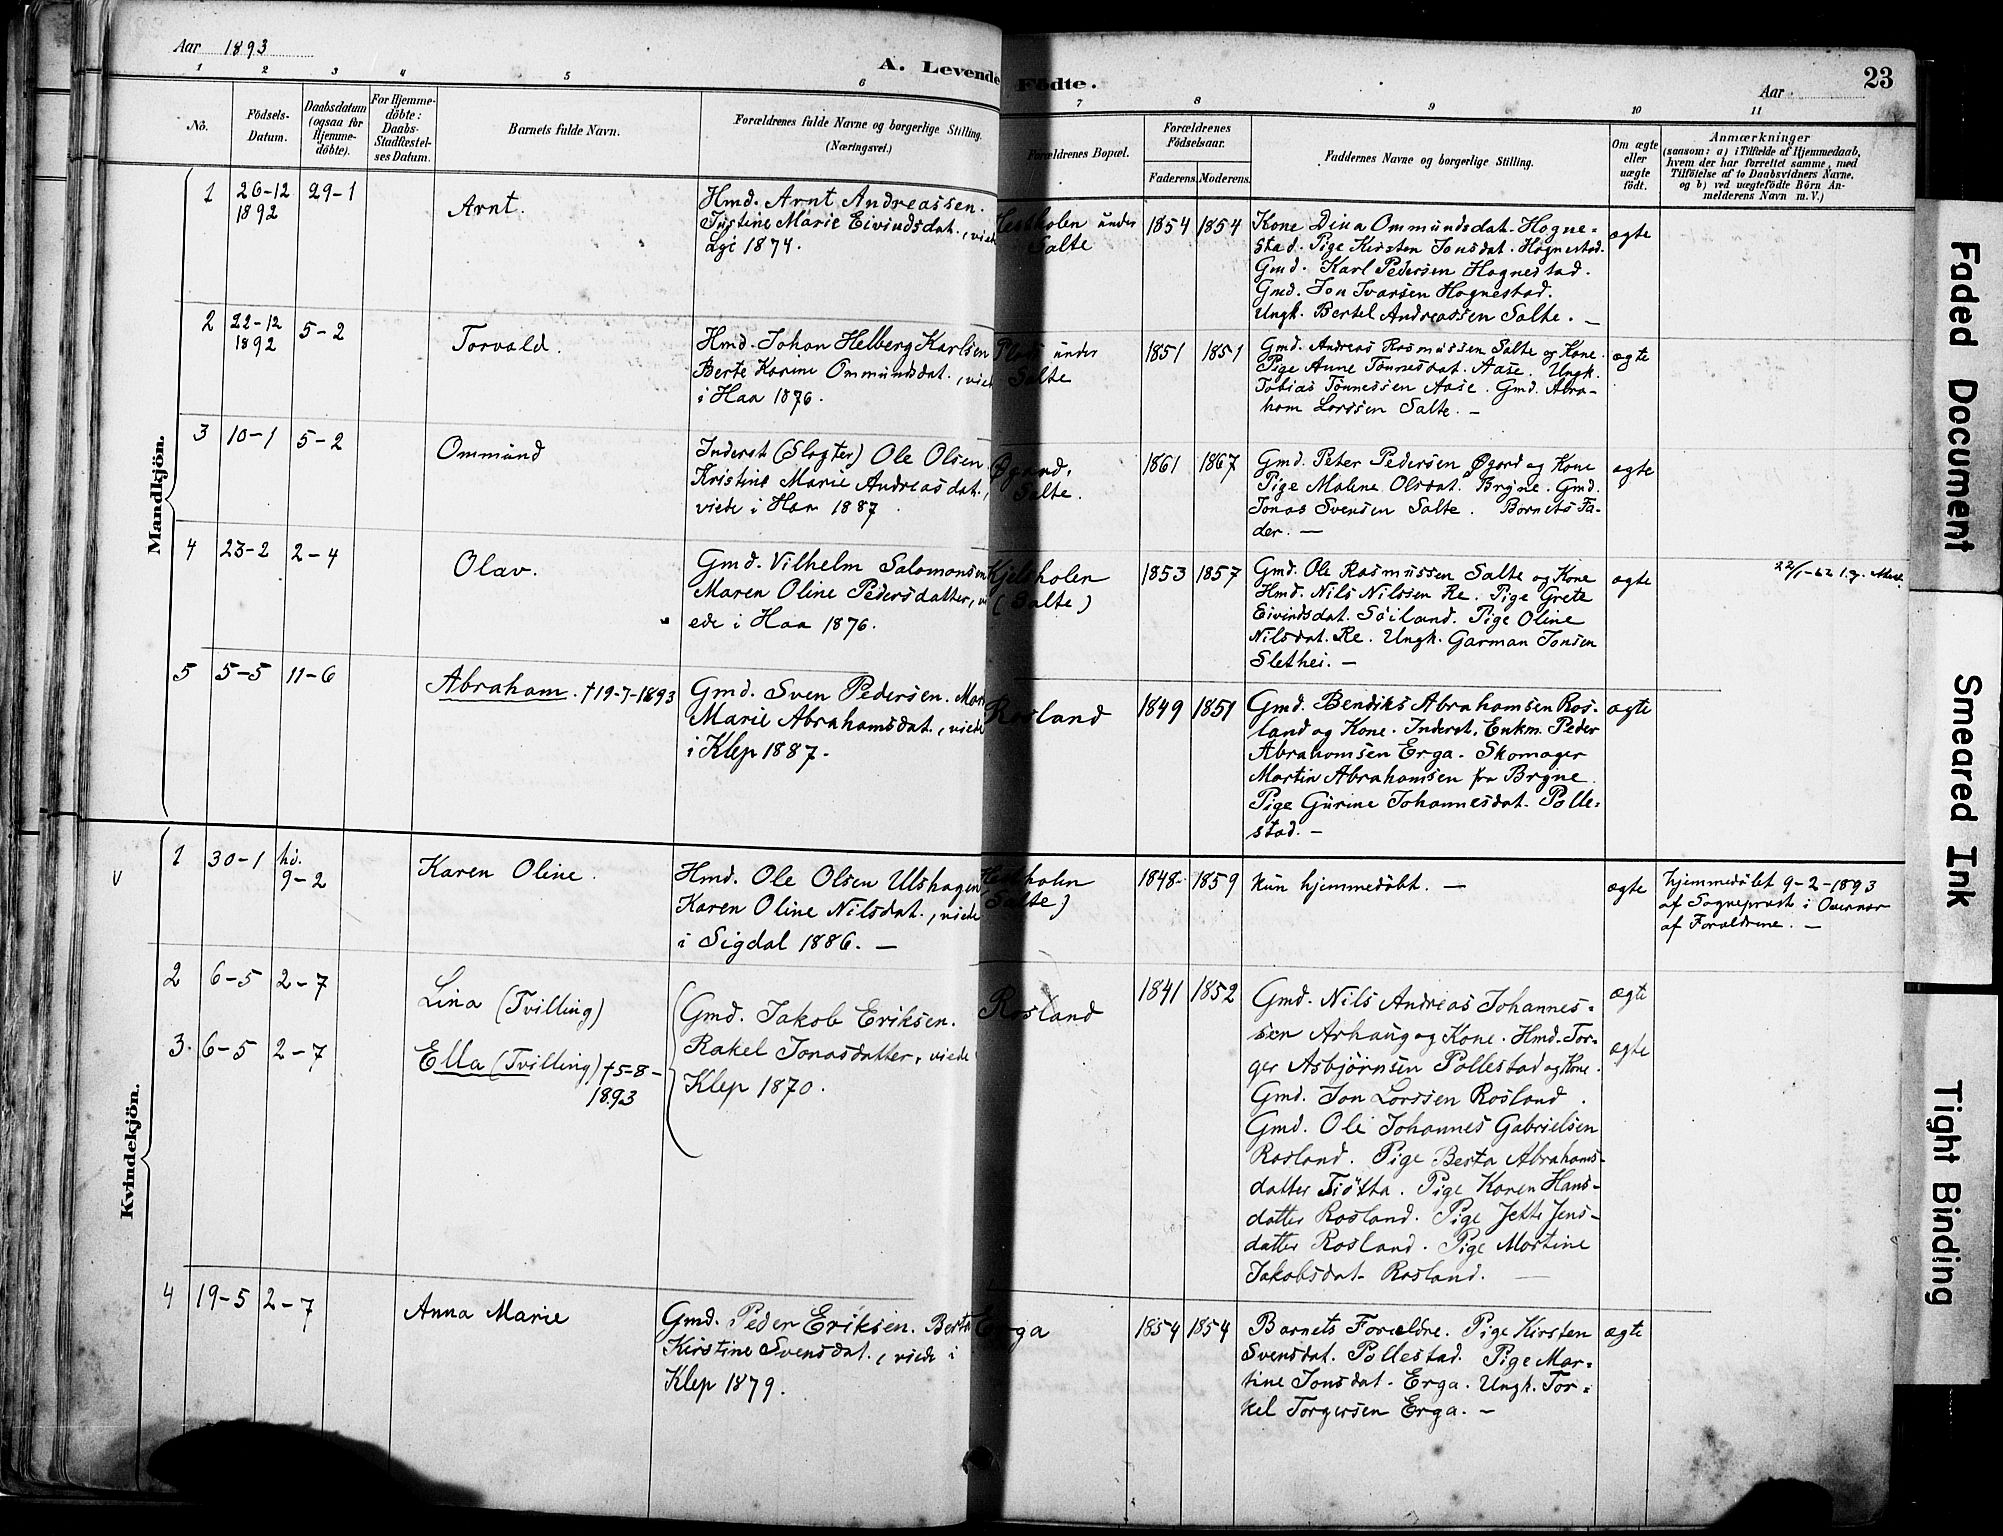 Aar 1893
A. Levende Födte.
Aar
23
1 2 3 4 5 6 7 8 9 10 11
No.
Födsels-Datum.
Daabsdatum (ogsaa for Hjemme-döbte).
For Hjemme-döbte: Daabs-Stadfæstel-ses Datum.
Barnets fulde Navn.
Forældrenes fulde Navne og borgerlige Stilling. (Næringsvei.)
Forældrenes Bopæl.
Forældrenes Födselsaar.
Faderens. Moderens.
Faddernes Navne og borgerlige Stilling.
Om ægte eller uægte födt.
Anmærkninger
(saasom: a) i Tilfælde af Hjemmedaab,
hvem der har forrettet samme, med
Tilföielse af to Daabsvidners Navne,
og b) ved uægtefödte Börn An-
melderens Navn m. V.)
Mandkjön.
1 26-12 1892 29-1 Arnt.
Hmd. Arnt Andreassen.
Justine Marie Eivindsdat., viede
Lye 1874.
Hestholen under
Salte
1854 1854
Kone Dina Ommundsdat. Hogne=
stad. Pige Kirsten Jonsdat. Hognestad.
Gmd. Karl Pedersen Hognestad.
Gmd. Jon Ivarsen Hognestad.
Ungk. Bertel Andreassen Salte. —
ægte
2 22-12 1892 5-2 Torvald.
Hmd. Johan Helberg Karlsen
Berte Karine Ommundsdat., viede
i Haa 1876.
Plads under
Salte
1851 1851
Gmd. Andreas Rasmussen Salte og Kone.
Pige Anne Tönnesdat. Aase. Ungk.
Tobias Tönnessen Aase. Gmd. Abra-
ham Larssen Salte. —
ægte
3 10-1 5-2 Ommund
Inderst (Slagter) Ole Olsen
Kristine Marie Andreasdat.,
viede i Haa 1887.
Salte.
1861 1867
Gmd. Peter Pedersen Øgard og Kone
Pige Malene Olsdat. Bryne. Gmd.
Jonas Svensen Salte. Barnets Fa-
der. —
ægte
4 23-2 2-4 Olav.
Gmd. Vilhelm Salomonsen
Maren Oline Pedersdatter, vi
ede i Haa 1876.
Kjelsholen
(Salte)
1853 1857
Gmd. Ole Rasmussen Salte og Kone
Hmd. Nils Nilssen Re. Pige Grete
Eivindsdat. Söiland. Pige Oline
Nilsdat. Re. Ungk. Garman Jonsen
Slethei. —
ægte
22/1-62
5 5-5 11-6 Abraham. †19-7-1893
Gmd. Sven Pedersen.
Marie Abrahamsdat., viede
i Klep 1887.
Rosland
1849 1851
Gmd. Bendiks Abrahamsen Ros-
land og Kone. Inderst, Enkm. Peder
Abrahamsen Erga. Skomager
Martin Abrahamsen fra Bryne.
Pige Gurine Johannesdat. Polle=
stad. —
ægte
Kvindekjön.
V
1 30-1 hd. 9-2 Karen Oline.
Hmd. Ole Olsen Ulshagen
Karen Oline Nilsdat., viede
i Sigdal 1886. —
Hestholen
(Salte)
1848 1859
Kun hjemmedöbt. —
ægte
hjemmedöbt 9-2-1893
af Sogneprest i Overvær
af Forældrene. —
2 6-5 2-7 Lina (Tvilling)
3. 6-5 2-7 Ella (Tvilling) †5-8-
1893
Gmd. Jakob Eriksen.
Rakel Jonasdatter, viede
Klep 1870.
Rosland
1841 1852
Gmd. Nils Andreas Johannes=
sen Arhaug og Kone. Hmd. Tor-
ger Asbjörnsen Pollestad og Kone.
Gmd. Jon Larssen Rosland.
Gmd. Ole Johannes Gabrielsen
Rosland. Pige Berta Abrahams-
datter Tjötta. Pige Karen Hans-
datter Rosland. Pige Jette Jens-
datter Rosland. Pige Martine
Jakobsdat. Rosland. —
ægte
ægte
4 19-5 2-7 Anna Marie
Gmd. Peder Eriksen. Berta
Kirstine Svensdat., viede i
Klep 1879.
Erga
1854 1854
Barnets Forældre. Pige Kirsten
Svensdat. Pollestad. Pige Mar=
tine Jonsdat. Erga. Ungk. Tor=
kel Torgersen Erga. —
ægte
Faded Document
Smeared Ink
Tight Binding